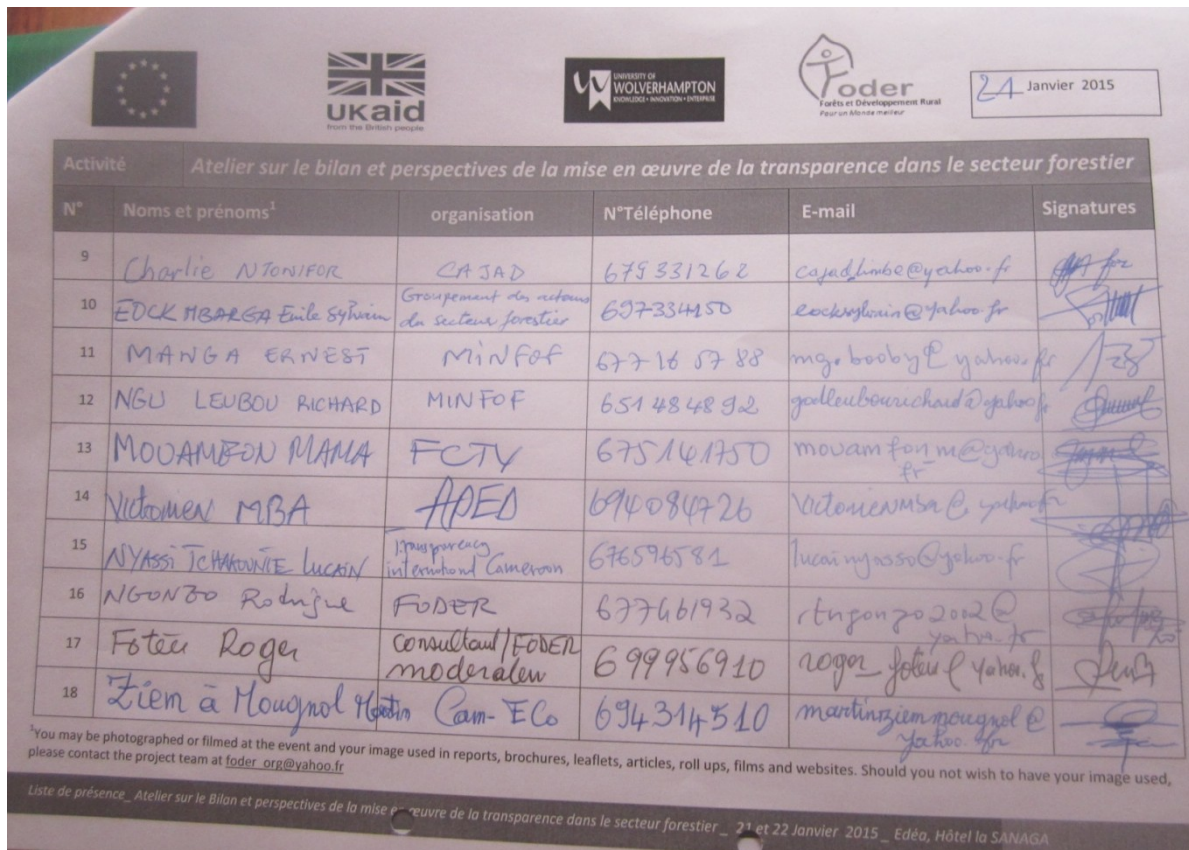 UKaid
from the British people
UNIVERSITY OF
WOLVERHAMPTON
KNOWLEDGE • INNOVATION • ENTERPRISE
Foder
Forêts et Développement Rural
Pour un Monde meilleur
21 Janvier 2015
Activité Atelier sur le bilan et perspectives de la mise en œuvre de la transparence dans le secteur forestier
N° Noms et prénoms¹ organisation N°Téléphone E-mail Signatures
9 Charlie NTONIFOR CAJAD 679331262 cajadlimbe@yahoo.fr
10 EOCK MBARGA Emile Sylvain Groupement des acteurs
du secteur forestier 697334150 eocksylvain@yahoo.fr
11 MANGA ERNEST MINFOF 677 16 57 88 mg.booby@yahoo.fr
12 NGU LEUBOU RICHARD MINFOF 651484892 godleubourichard@yahoo.fr
13 MOUAMFON MAMA FCTV 675141750 mouamfon_m@yahoo
fr
14 Victorien MBA APED 694084726 Victorienmba@yahoo.fr
15 NYASSI TCHAKOUNTE LUCAIN Transparency
international Cameroon 676596581 lucainyasso@yahoo.fr
16 NGONZO Rodrigue FODER 677461932 rtngonzo2002@
yahoo.fr
17 Foteu Roger consultant/FODER
moderateur 699956910 roger_foteu@yahoo.fr
18 Ziem à Mougnol Martin Cam-ECo 694314510 martinziemmougnol@
yahoo.fr
¹You may be photographed or filmed at the event and your image used in reports, brochures, leaflets, articles, roll ups, films and websites. Should you not wish to have your image used,
please contact the project team at foder_org@yahoo.fr
Liste de présence_ Atelier sur le Bilan et perspectives de la mise en œuvre de la transparence dans le secteur forestier _ 21 et 22 Janvier 2015 _ Edéa, Hôtel la SANAGA